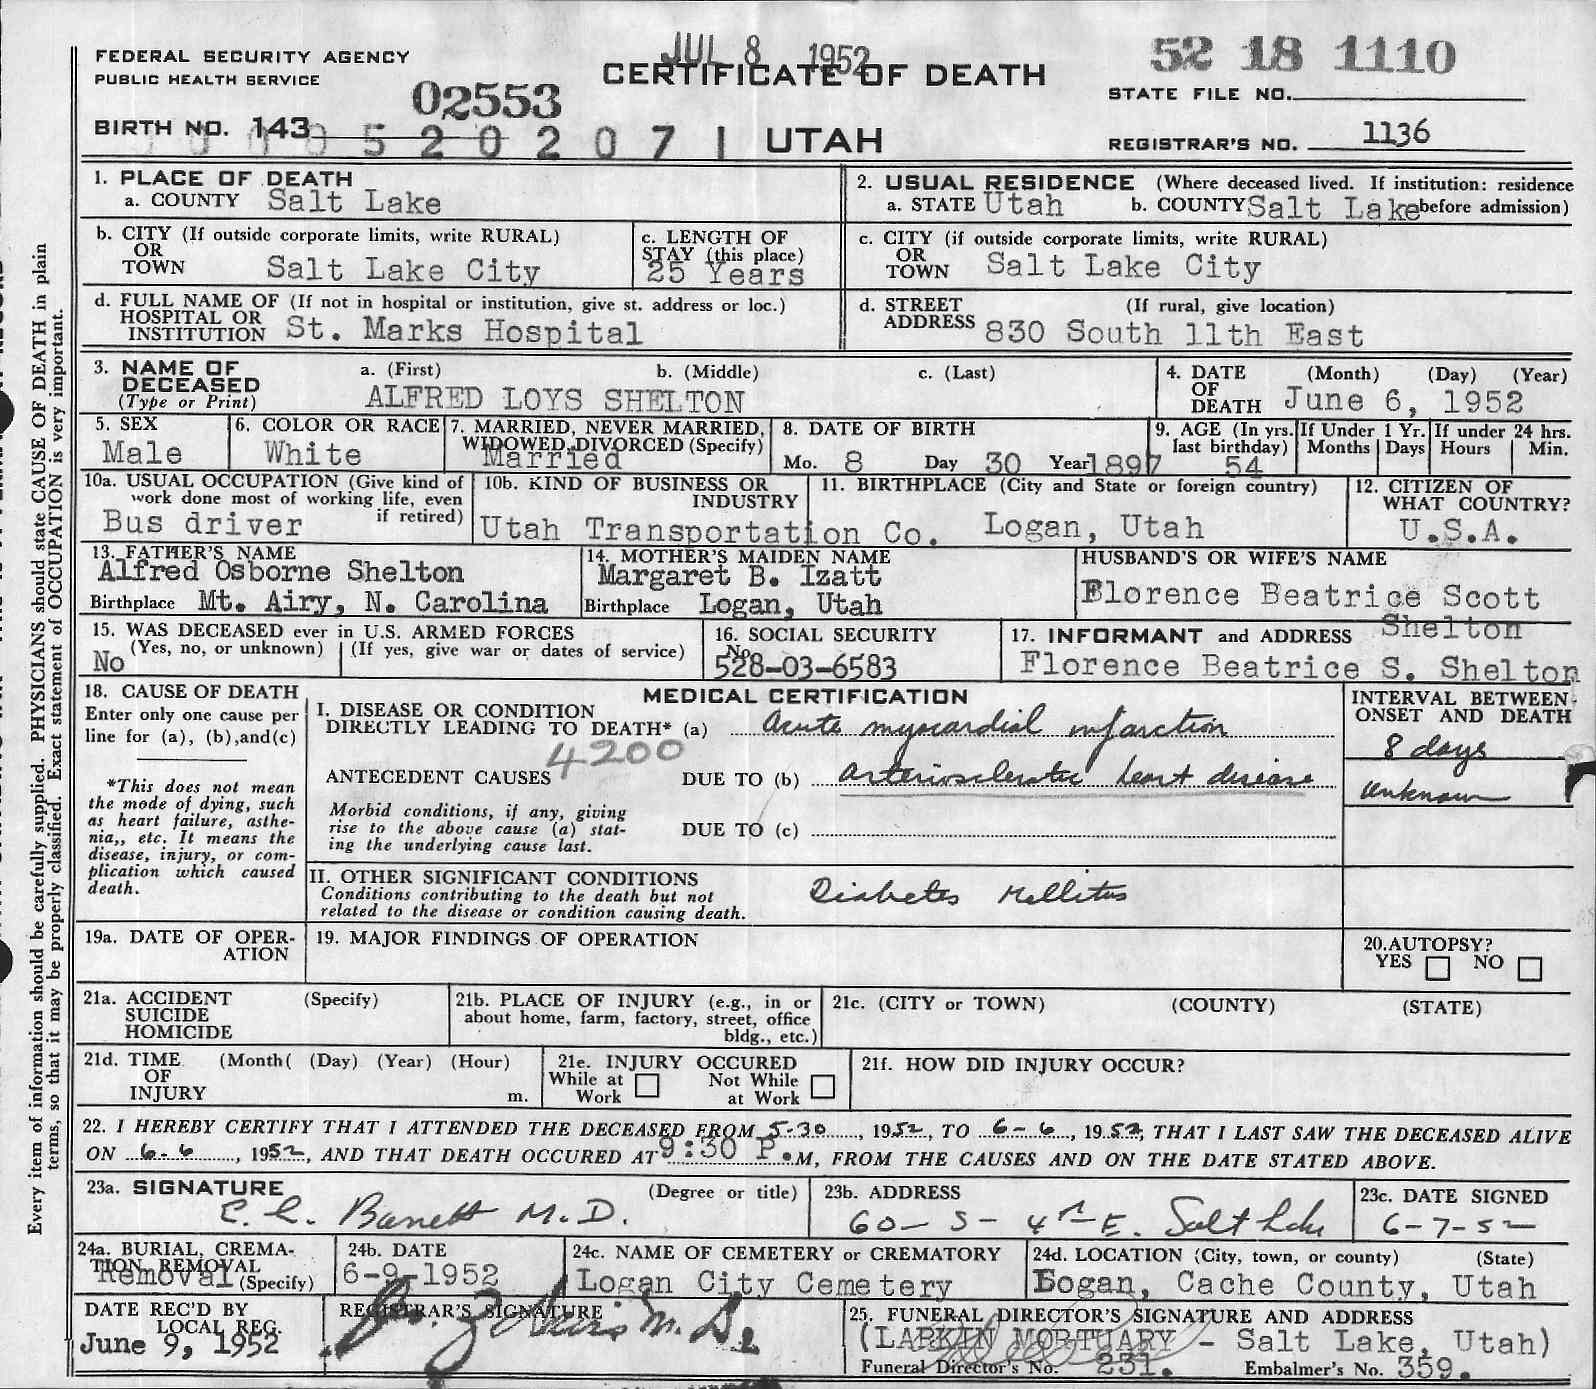 JUL 8 1952
52 18 1110
FEDERAL SECURITY AGENCY
PUBLIC HEALTH SERVICE
02553
CERTIFICATE OF DEATH
STATE FILE NO.
BIRTH NO. 143
520207
UTAH
REGISTRAR'S NO. 1136
Every item of information should be carefully supplied. PHYSICIANS should state CAUSE OF DEATH in plain
terms, so that it may be properly classified. Exact statement of OCCUPATION is very important.
1. PLACE OF DEATH
a. COUNTY Salt Lake
2. USUAL RESIDENCE (Where deceased lived. If institution: residence
a. STATE Utah b. COUNTY Salt Lake before admission)
b. CITY (If outside corporate limits, write RURAL)
OR
TOWN Salt Lake City
c. LENGTH OF
STAY (this place)
25 Years
c. CITY (if outside corporate limits, write RURAL)
OR
TOWN Salt Lake City
d. FULL NAME OF (If not in hospital or institution, give st. address or loc.)
HOSPITAL OR
INSTITUTION St. Marks Hospital
d. STREET (If rural, give location)
ADDRESS 830 South 11th East
3. NAME OF a. (First) b. (Middle) c. (Last)
DECEASED
(Type or Print) ALFRED LOYS SHELTON
4. DATE (Month) (Day) (Year)
OF
DEATH June 6, 1952
5. SEX
Male
6. COLOR OR RACE
White
7. MARRIED, NEVER MARRIED,
WIDOWED, DIVORCED (Specify)
Married
8. DATE OF BIRTH
Mo. 8 Day 30 Year 1897
9. AGE (In yrs.
last birthday)
54
If Under 1 Yr.
Months Days
If under 24 hrs.
Hours Min.
10a. USUAL OCCUPATION (Give kind of
work done most of working life, even
if retired)
Bus driver
10b. KIND OF BUSINESS OR
INDUSTRY
Utah Transportation Co.
11. BIRTHPLACE (City and State or foreign country)
Logan, Utah
12. CITIZEN OF
WHAT COUNTRY?
U.S.A.
13. FATHER'S NAME
Alfred Osborne Shelton
Birthplace Mt. Airy, N. Carolina
14. MOTHER'S MAIDEN NAME
Margaret B. Izatt
Birthplace Logan, Utah
HUSBAND'S OR WIFE'S NAME
Florence Beatrice Scott
Shelton
15. WAS DECEASED ever in U.S. ARMED FORCES
(Yes, no, or unknown) (If yes, give war or dates of service)
No
16. SOCIAL SECURITY
No.
528-03-6583
17. INFORMANT and ADDRESS
Florence Beatrice S. Shelton
18. CAUSE OF DEATH
Enter only one cause per
line for (a), (b), and (c)
*This does not mean
the mode of dying, such
as heart failure, asthe-
nia,, etc. It means the
disease, injury, or com-
plication which caused
death.
MEDICAL CERTIFICATION
I. DISEASE OR CONDITION
DIRECTLY LEADING TO DEATH* (a) Acute myocardial infarction
4200
ANTECEDENT CAUSES DUE TO (b) arteriosclerotic heart disease
Morbid conditions, if any, giving
rise to the above cause (a) stat-
ing the underlying cause last.
DUE TO (c)
INTERVAL BETWEEN
ONSET AND DEATH
8 days
unknown
II. OTHER SIGNIFICANT CONDITIONS
Conditions contributing to the death but not
related to the disease or condition causing death.
Diabetes Mellitus
19a. DATE OF OPER-
ATION
19. MAJOR FINDINGS OF OPERATION
20. AUTOPSY?
YES NO
21a. ACCIDENT (Specify)
SUICIDE
HOMICIDE
21b. PLACE OF INJURY (e.g., in or
about home, farm, factory, street, office
bldg., etc.)
21c. (CITY or TOWN) (COUNTY) (STATE)
21d. TIME (Month( (Day) (Year) (Hour)
OF
INJURY m.
21e. INJURY OCCURED
While at Work Not While at Work
21f. HOW DID INJURY OCCUR?
22. I HEREBY CERTIFY THAT I ATTENDED THE DECEASED FROM 5-30, 1952, TO 6-6, 1952, THAT I LAST SAW THE DECEASED ALIVE
ON 6-6, 1952, AND THAT DEATH OCCURED AT 9:30 P.M, FROM THE CAUSES AND ON THE DATE STATED ABOVE.
23a. SIGNATURE (Degree or title)
Barrett M.D.
23b. ADDRESS
60-S-4th E. Salt Lake
23c. DATE SIGNED
6-7-52
24a. BURIAL, CREMA-
TION, REMOVAL
Removal (Specify)
24b. DATE
6-9-1952
24c. NAME OF CEMETERY or CREMATORY
Logan City Cemetery
24d. LOCATION (City, town, or county) (State)
Logan, Cache County, Utah
DATE REC'D BY
LOCAL REG.
June 9, 1952
REGISTRAR'S SIGNATURE
25. FUNERAL DIRECTOR'S SIGNATURE AND ADDRESS
(LARKIN MORTUARY - Salt Lake, Utah)
Funeral Director's No. 231. Embalmer's No. 359.